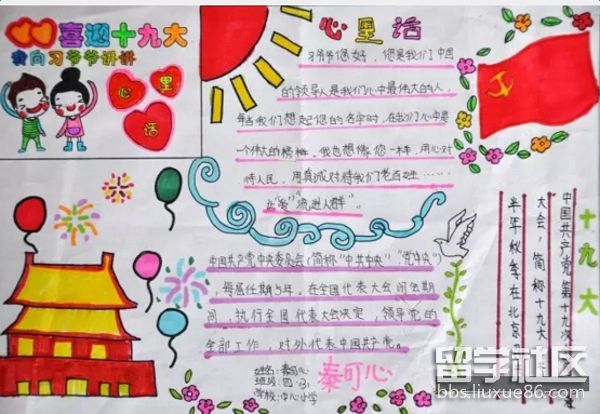 喜迎十九大
我向习爷爷讲讲
心里话
心里话
习爷爷您好，您是我们中国
的领导人是我们心中最伟大的人，
每当我们想起您的名字时，在我们心中是
一个伟大的榜样，我也想像您一样，用心对
待人民，用真诚对待我们老百姓……
让"爱"流进人群"。
中国共产党中央委员会（简称"中共中央""党中央"）
，每届任期5年，在全国代表大会闭会期
间，执行全国代表大会决定，领导党的
全部工作，对外代表中国共产党。
姓名：秦可心
班级：四（3）
学校：中心小学
秦可心
十九大
中国共产党第十九次
大会，简称十九大
半年秋季在北京
留学社区
bbs.liuxue86.com